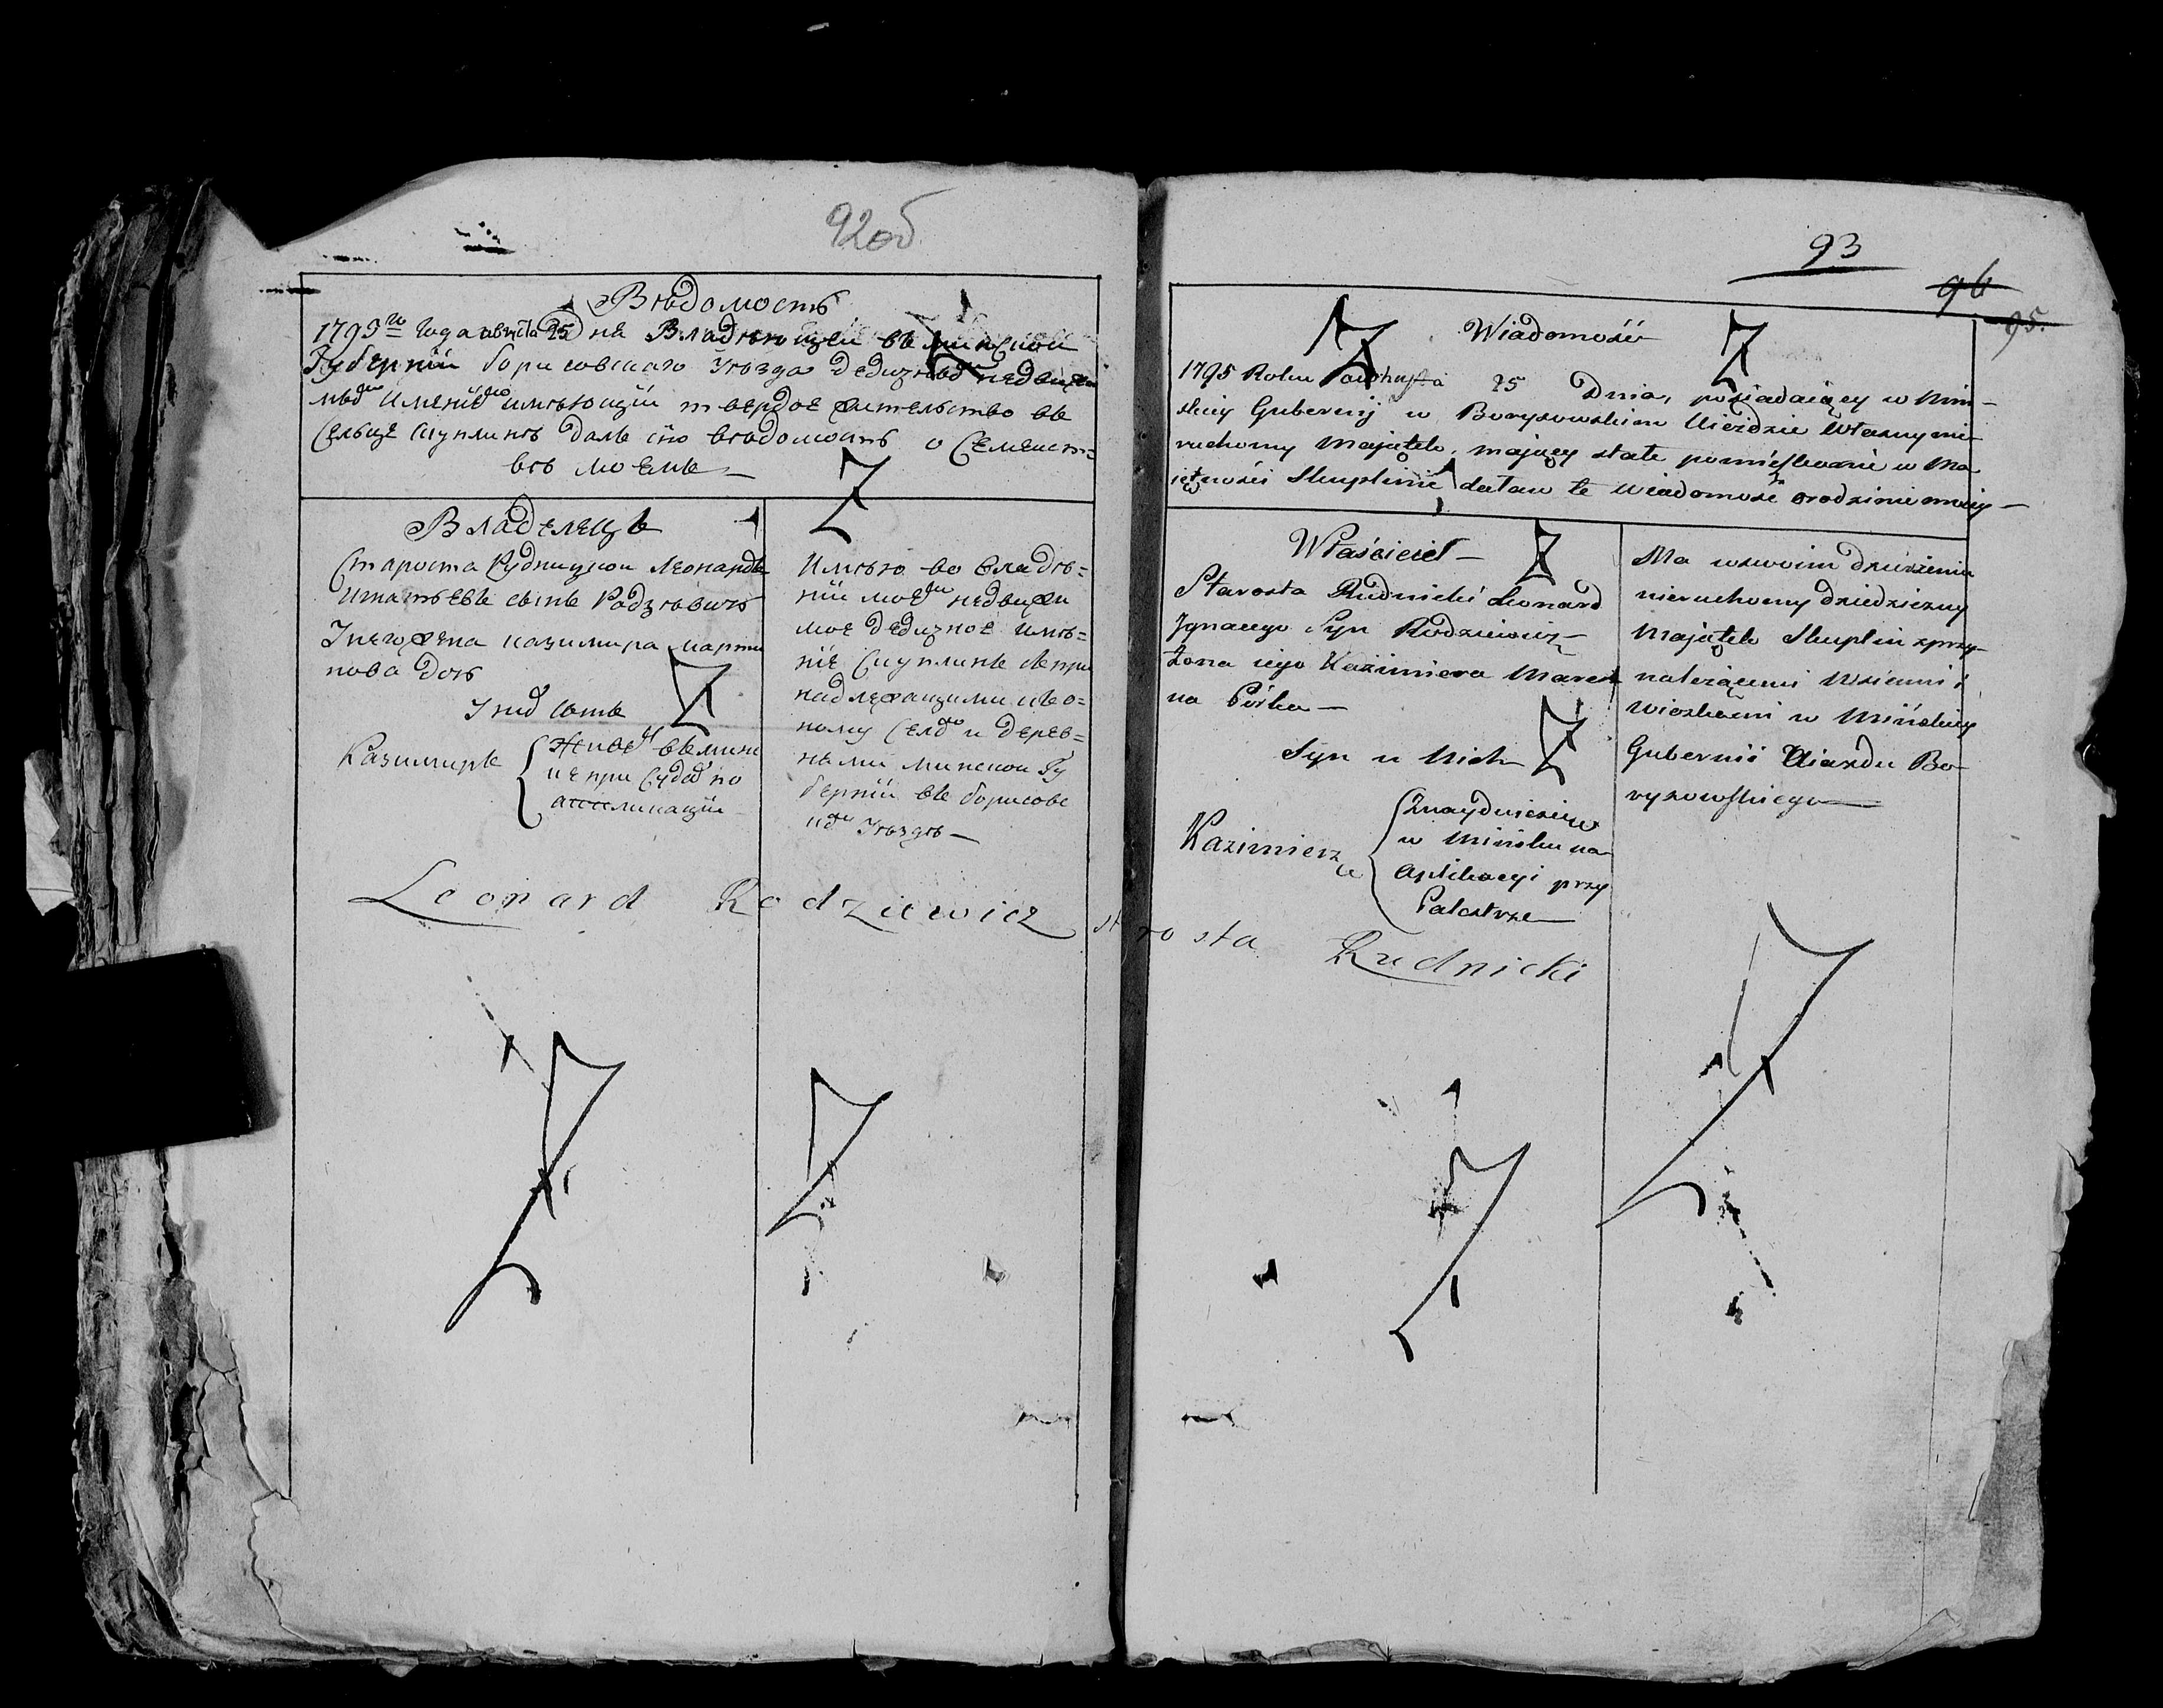 92об
Вѣдомость
1795го Года августа 25 на Владѣющей въ минской
Губерніи борисовскаго Уѣзда дедизнымъ недвижи
мымъ имениемъ имѣющій твердое жительство въ
Сельце Скуплинѣ далъ сію вѣдомость о Семейст=
вѣ моемъ —
Владелецъ
Староста Рудницкой Леонардъ
Игнатьевъ сынъ Родзѣвичъ
У него жена казимира марти
нова дочь
У нихъ сынъ
Казимиръ { живетъ въ минс
ке при Судахъ по
апликаціи
Имѣю во владѣ=
ніи моемъ недвижи
мое дедизное имѣ=
ніе Скуплинъ съ при
надлежащими къ о=
ному Селомъ и дерев=
нями минской Гу
берніи въ борисовс
комъ Уѣздѣ —
93
96
95.
Wiadomość
1795 Roku Awhusta 25 Dnia, posiadaiący w Miń-
skiey Gubernij w Borysowskim Uieździe Własny nie
ruchomy Majątek, mający stałe pomięszkanie w Ma
iętności Skuplinie dałam tę wiadomość o rodzinie moiey —
Właściciel —
Starosta Rudnicki Leonard
Ignacego Syn Rodziewicz —
Żona iego Kazimiera Marci
na Córka —
Syn u Nich
Kazimierz { Znayduie się
w Mińsku na
Aplikacyi przy
Palestrze —
Ma w swoim dzierżeniu
nieruchomy dziedziczny
Majątek Skuplin z przy-
należącemi Wsiami i
wioskami w Mińskiey
Gubernii Uiazdu Bo-
rysowskiego —
Leonard Rodziewicz starosta Rudnicki